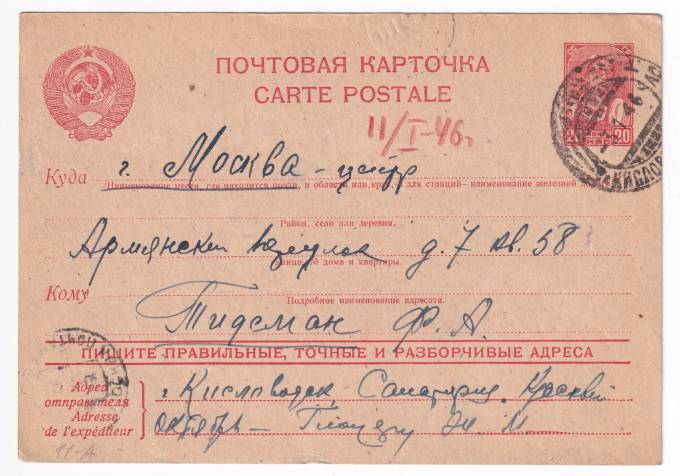 ПОЧТОВАЯ КАРТОЧКА
CARTE POSTALE
11/I-46г
20 20
КИСЛОВ
Куда г. Москва - центр
(Наименование места, где находится почта, и области или края, а для станций—наименование железной до
Район, село или деревня.
Армянский д. 7 кв. 58
улица, № дома и квартиры.
Кому
Подробное наименование адресата.
Тидеман Ф. А.
ПИШИТЕ ПРАВИЛЬНЫЕ, ТОЧНЫЕ И РАЗБОРЧИВЫЕ АДРЕСА
Адрес отправителя
Adresse de l'expéditeur
г. Кисловодск Санаторий
Октябрь -
11-А